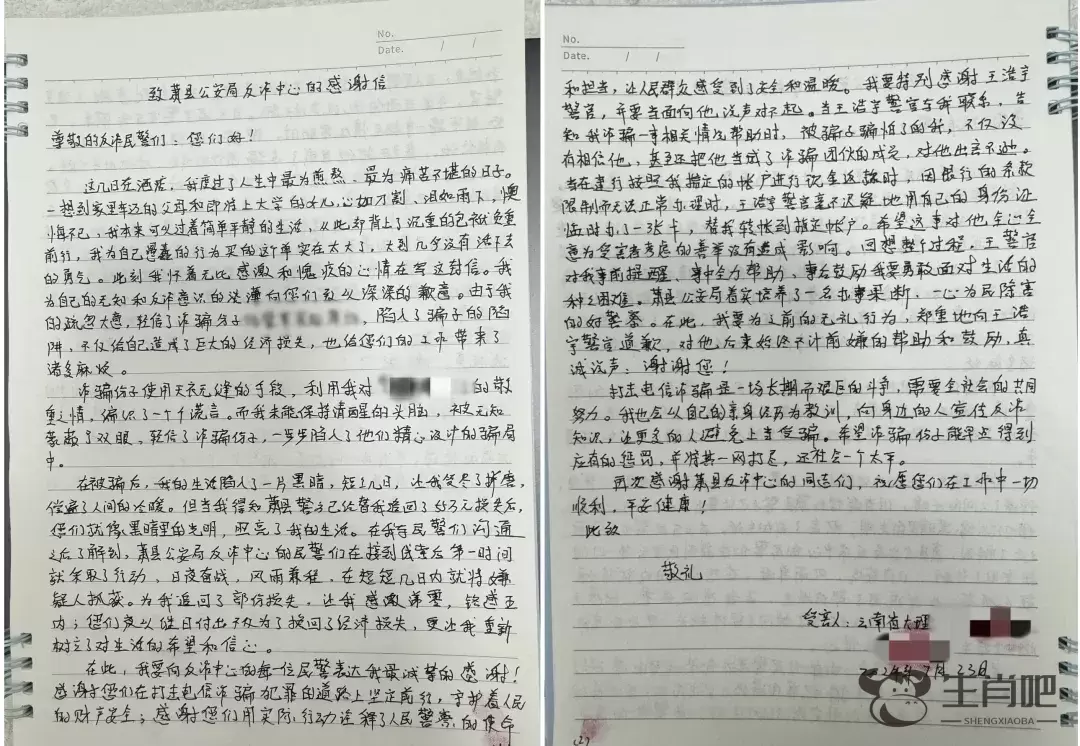 No.
Date. / /
致萧县公安局反诈中心的感谢信
尊敬的反诈民警们：您们好！
这几日在洒茫，我度过了人生中最为煎熬、最为痛苦不堪的日子。
一想到家里年迈的父母和即将上大学的女儿，心如刀割、泪如雨下，懊
悔不已，我本来可以过着简单平静的生活，从此却背上了沉重的包袱负重
前行，我为自己愚蠢的行为买的这个单实在太大了，大到几乎没有活下去
的勇气。此刻我怀着无比感激和愧疚的心情在写这封信。我
为自己的无知和反诈意识的淡薄向您们致以深深的歉意。由于我
的疏忽大意，轻信了诈骗分子，陷入了骗子的陷
阱，不仅给自己造成了巨大的经济损失，也给您们的工作带来了
诸多麻烦。
诈骗份子使用天衣无缝的手段，利用我对的敬
重之情，编织了一个个谎言。而我未能保持清醒的头脑，被无知
蒙蔽了双眼，轻信了诈骗份子，一步步陷入了他们精心设计的骗局
中。
在被骗后，我的生活陷入了一片黑暗，短短几日，让我受尽了折磨，
偿遍了人间的冷暖。但当我得知萧县警方已经替我追回了55万元损失后，
您们就像黑暗里的光明，照亮了我的生活。在我与民警们沟通
之后了解到，萧县公安局反诈中心的民警们在接到线索后第一时间
就采取了行动，日夜奋战，风雨兼程，在短短几日内就将嫌
疑人抓获。为我追回了部份损失，让我感激涕零，铭感五
内；您们夜以继日付出不仅为了挽回了经济损失，更让我重新
树立了对生活的希望和信心。
在此，我要向反诈中心的每一位民警表达我最诚挚的感谢！
感谢您们在打击电信诈骗犯罪的道路上坚定前行，守护着人民
的财产安全；感谢您们用实际行动诠释了人民警察的使命
No.
Date. / /
和担当，让人民群众感受到了安全和温暖。我要特别感谢王浩宇
警官，并要当面向他说声对不起。当王浩宇警官与我联系，告
知我诈骗一事相关情况帮助时，被骗子骗怕了的我，不仅没
有相信他，甚至还把他当成了诈骗团伙的成员，对他出言不逊。
当在建行按照我指定的帐户进行现金返款时，因银行的条款
限制而无法正常办理时，王浩宇警官毫不迟疑地用自己的身份证
临时办了一张卡，替我转帐到指定帐户。希望这事对他全心全
意为受害者考虑的善举没有造成影响。回想整个过程，王警官
对我事前提醒、事中全力帮助、事后鼓励我要勇敢面对生活的
种种困难。萧县公安局着实培养了一名办事果断、一心为民除害
的好警察。在此，我要为之前的无礼行为，郑重地向王浩
宇警官道歉，对他后来始终不计前嫌的帮助和鼓励，真
诚说声：谢谢您！
打击电信诈骗是一场长期而艰巨的斗争，需要全社会的共同
努力。我也会以自己的亲身经历为教训，向身边的人宣传反诈
知识，让更多的人避免上当受骗。希望诈骗份子能早点得到
应有的惩罚，并将其一网打尽，还社会一个太平。
再次感谢萧县反诈中心的同志们，祝愿您们在工作中一切
顺利，平安健康！
此致
敬礼
受害人：云南省大理
2024年7月23日
(2)
生肖吧
SHENGXIAOBA